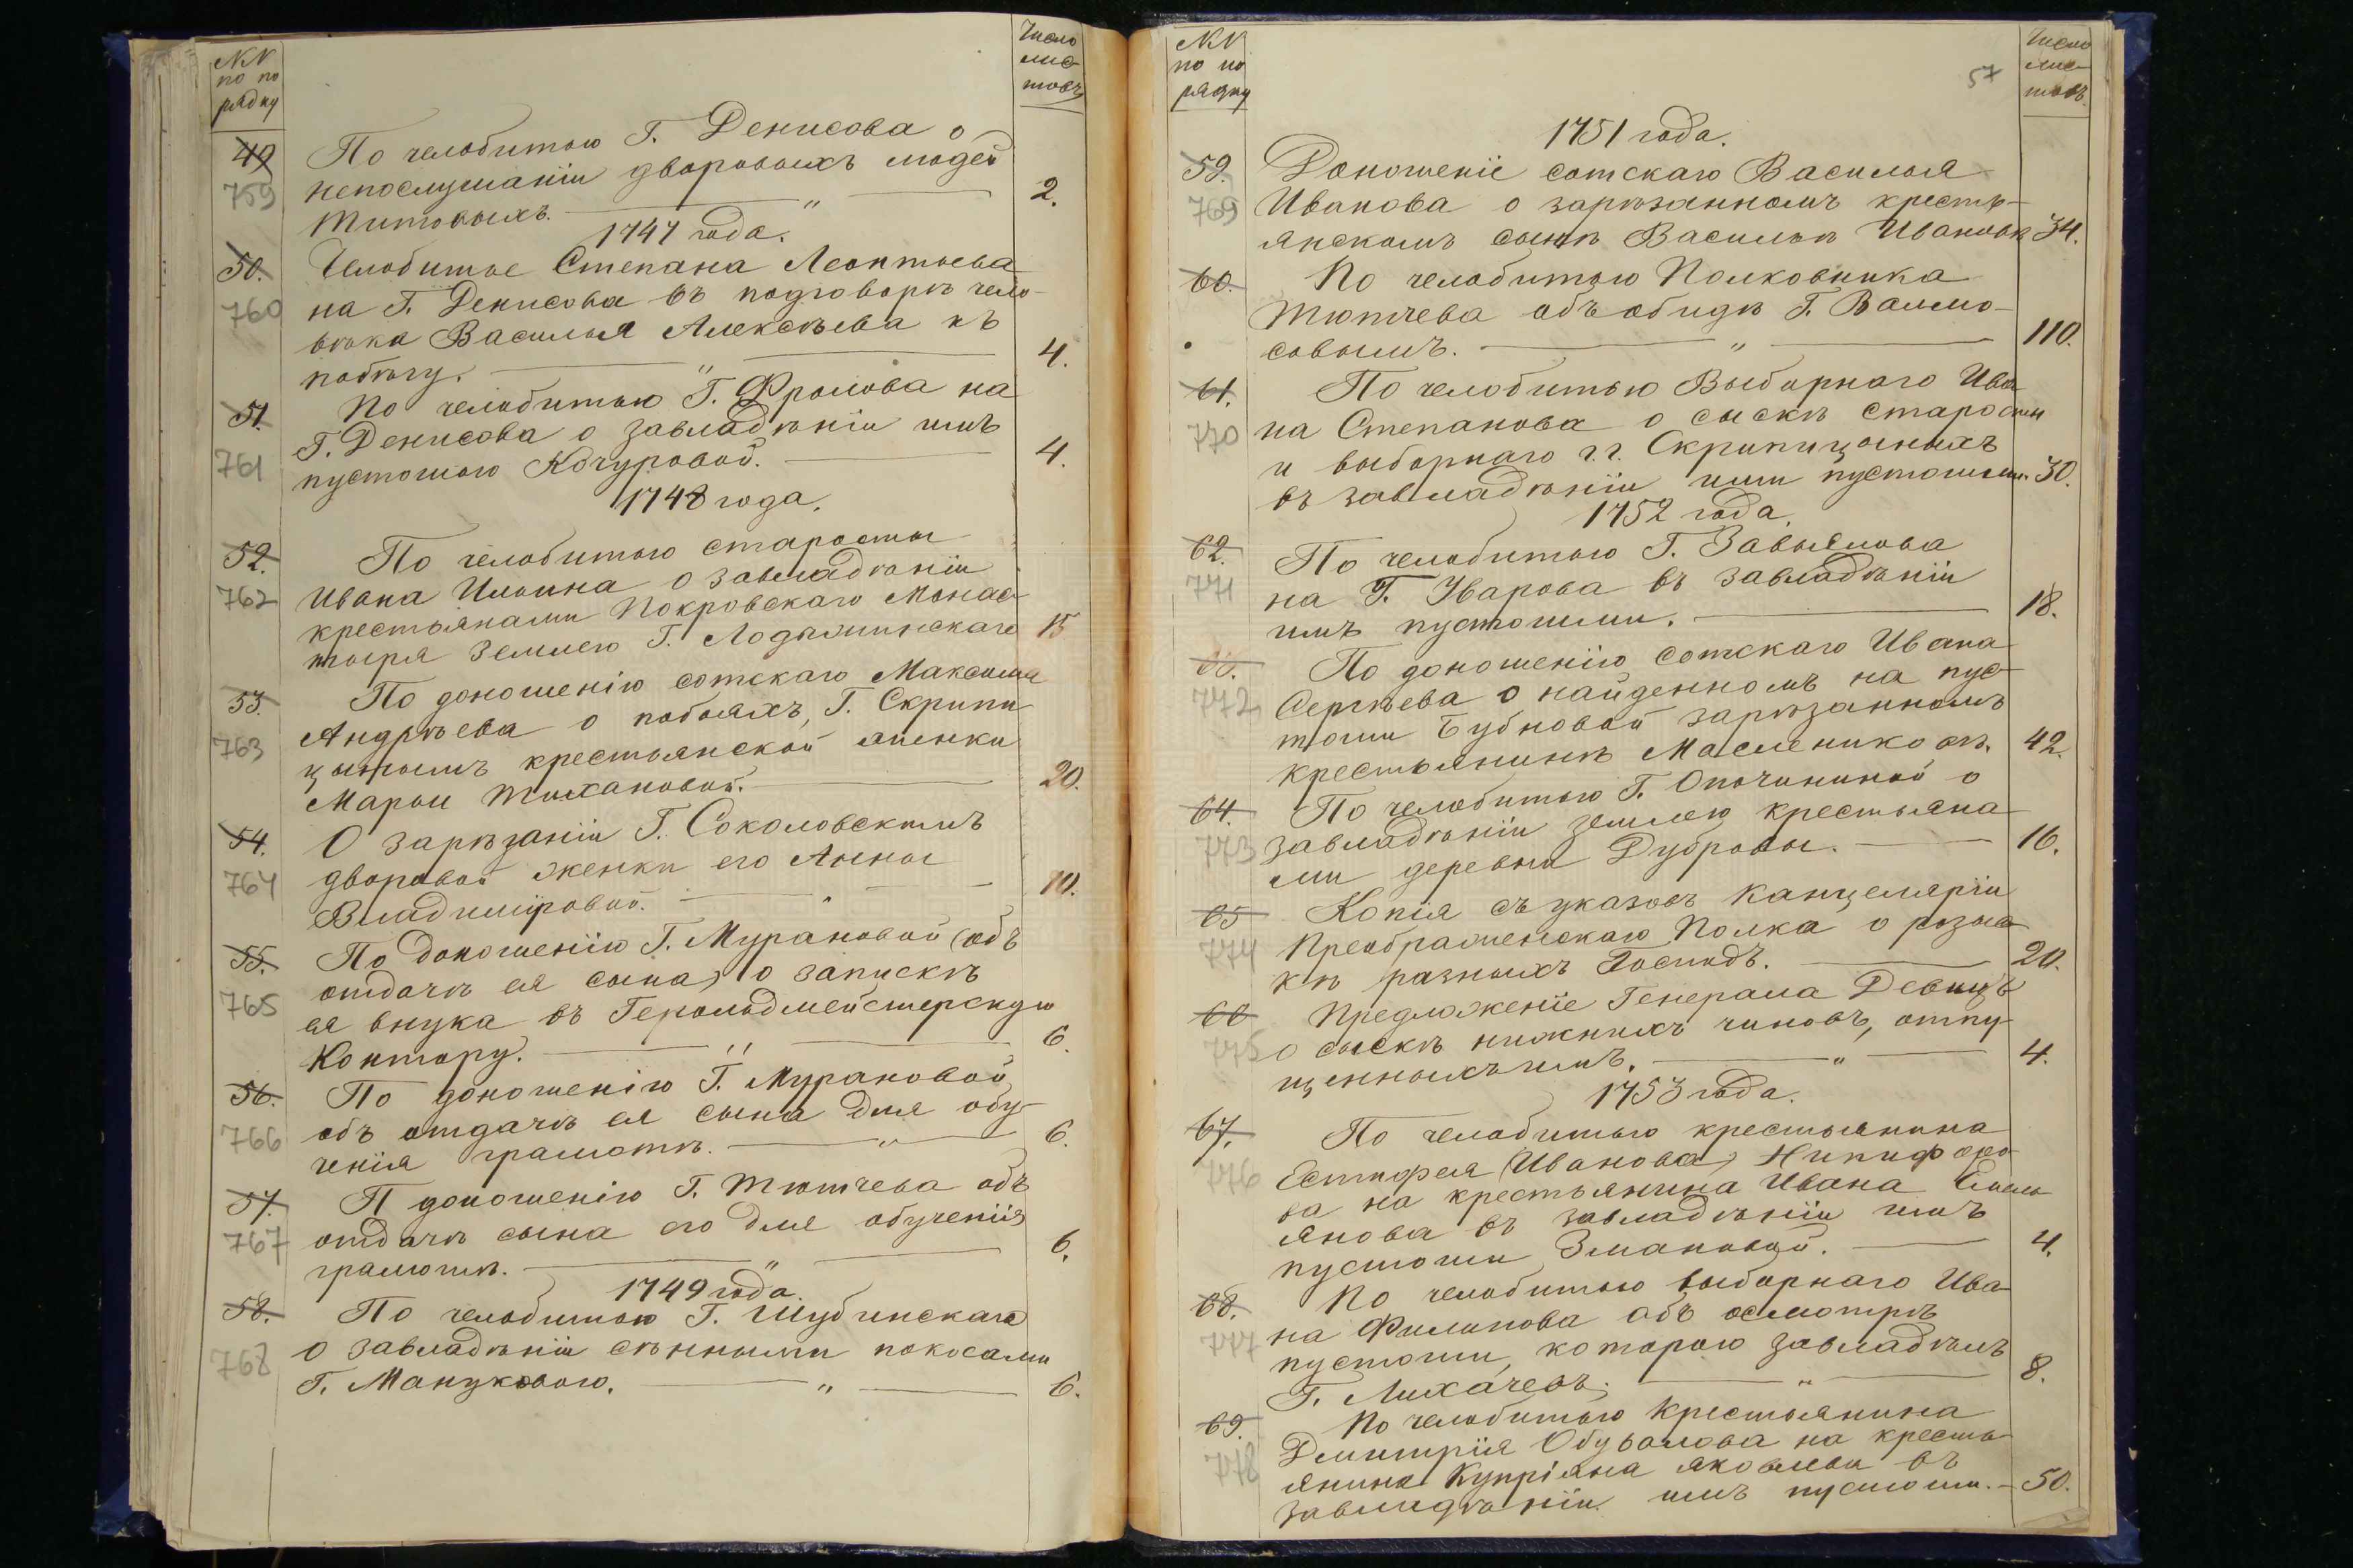 NN
по по
рядку
Число
лис-
товъ
49
759
По челобитью Г. Денисова о
непослушаніи дворовыхъ людей
Титовыхъ. — " — 2.
1747 года.
50.
760
Челобитье Степана Леонтьева
на Г. Денисова въ подговорѣ чело-
вѣка Василья Алексѣева къ
побѣгу. — " — 4.
51.
761
По челобитью Г. Фролова на
Г. Денисова о завладѣніи имъ
пустошью Кочуровой. — 4.
1748 года.
52.
762
По челобитью старосты
Ивана Ильина о завладѣніи
крестьянами Покровскаго Монас-
тыря землею Г. Лодыжинскаго 15
53.
763
По доношенію сотскаго Максима
Андрѣева о побояхъ, Г. Скрипи-
цынымъ крестьянской женки
Марьи Тихановой. — 20.
54.
764
О зарѣзаніи Г. Соколовскимъ
дворовой женки его Анны
Владиміровой. — " — 10.
55.
765
По доношенію Г. Мурановой (объ
отдачѣ ея сына) о запискѣ
ея внука въ Герольдмейстерскую
Контору. — " — 6.
56.
766
По доношенію Г. Мурановой,
объ отдачѣ ея сына для обу-
ченія грамотѣ. — " — 6.
57.
767
П доношенію Г. Тютчева объ
отдачѣ сына его для обученія
грамотѣ. — " — 6.
1749 года.
58.
768
По челобитью Г. Шубинскаго
о завладѣніи сѣнными покосами
Г. Мануковою. — " — 6.
NN
по по
рядку
57
Число
лис-
товъ.
1751 года.
59.
769
Доношеніе сотскаго Василья
Иванова о зарѣзанномъ кресть-
янскомъ сынѣ Васильѣ Ивановѣ 34.
60.
По челобитью Полковника
Тютчева объ обидѣ Г. Ваимо-
совымъ. — " — 110.
61.
770
По челобитью Выборнаго Ива-
на Степанова о сыскѣ старосты
и выборнаго г.г. Скрипицыныхъ
въ завладѣніи ими пустошьми. 30.
1752 года.
62.
771
По челобитью Г. Завьялова
на Г. Уварова въ завладѣніи
имъ пустошми. — 18.
772
По доношенію сотскаго Ивана
Сергѣева о найденномъ на пус-
тоши Бубновой зарѣзанномъ
крестьянинѣ Масленниковѣ. 42.
64.
773
По челобитью Г. Опочининой о
завладѣніи землею крестьяна-
ми деревни Дубровы. — 16.
65
774
Копія съ указовъ Канцеляріи
Преображенскаго Полка о розыс-
кѣ разныхъ Господъ. — 20.
66
775
Предложеніе Генерала Девицъ
о сыскѣ нижнихъ чиновъ, отпу-
щенныхъ имъ. — " — 4.
1753 года.
67.
776
По челобитью крестьянина
Естифея (Иванова) Никифоро-
ва на крестьянина Ивана Емель-
янова въ завладѣніи имъ
пустоши Змановой. — 4.
68.
777
По челобитью выборнаго Ива-
на Филипова объ осмотрѣ
пустоши, которою завладѣлъ
Г. Лихачевъ. — " — 8.
69.
778
По челобитью крестьянина
Дмитрія Обувалова на кресть-
янина Купріяна Яковлева въ
завладѣніи имъ пустоши. — 50.